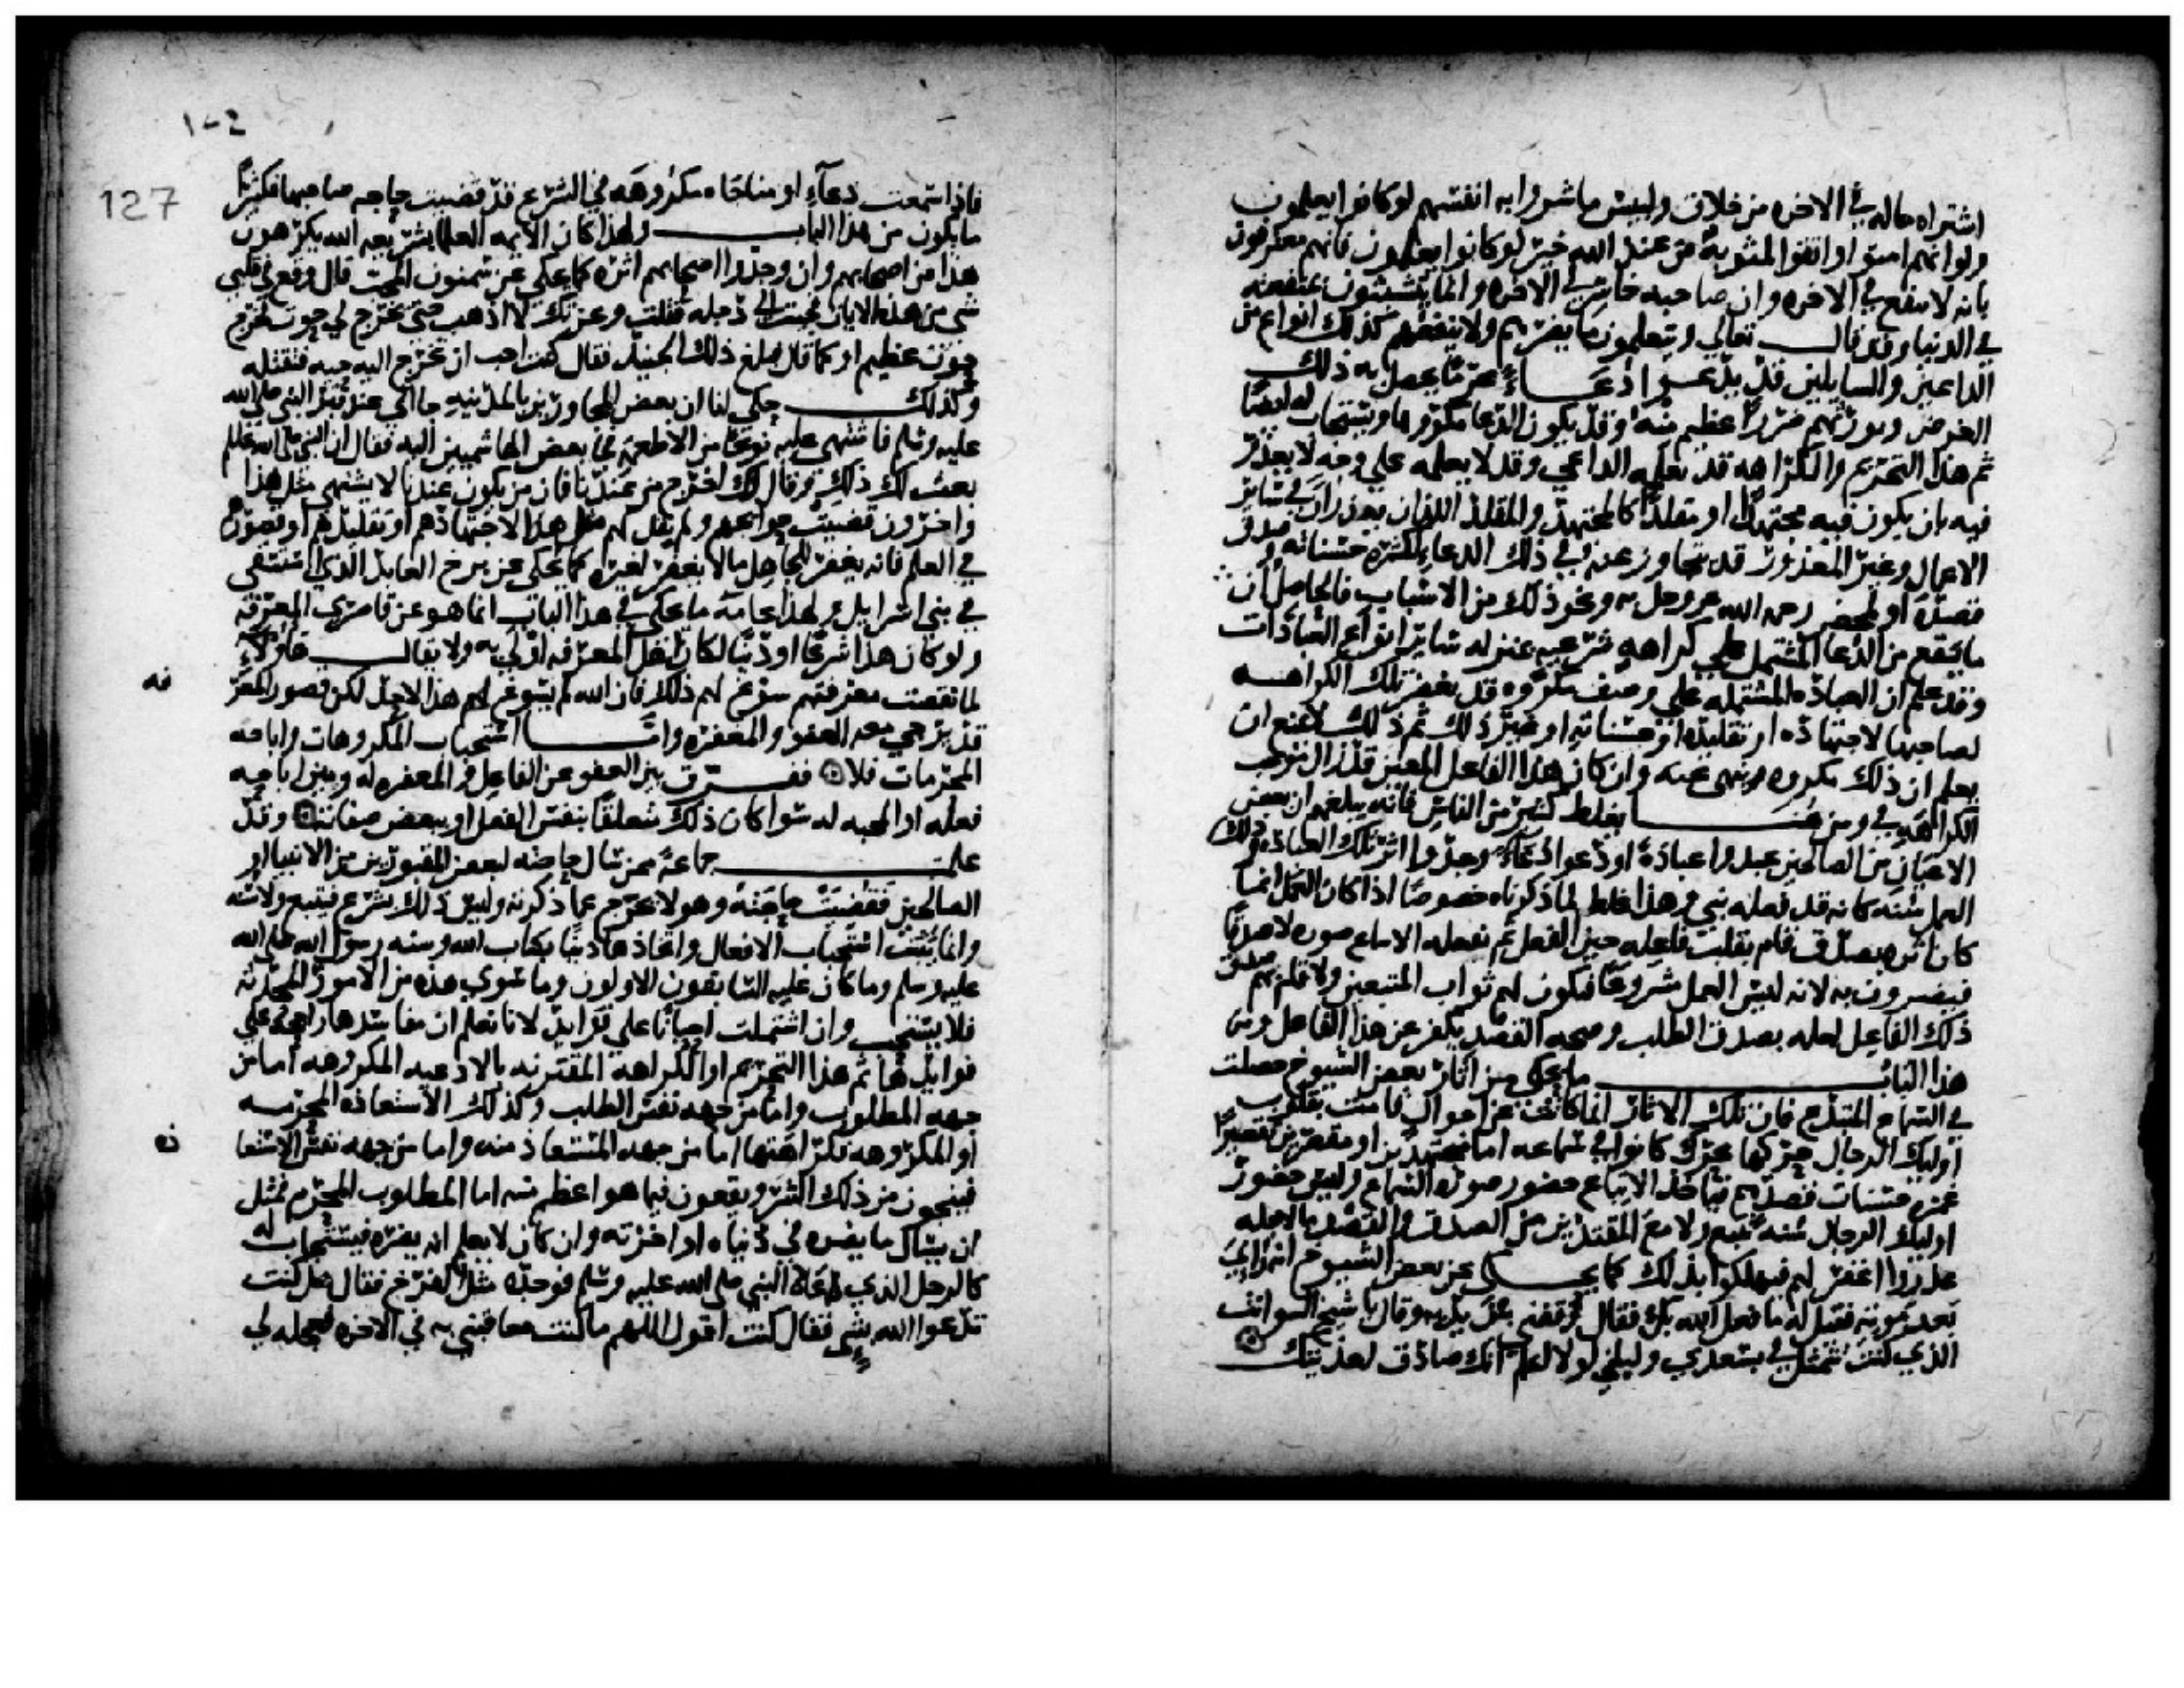 اشتراه ماله في الاخره من خلاق ولبيس ما شروا به انفسهم لو كانوا يعلمون
ولو انهم امنوا واتقوا لمثوبة من عند الله خير لو كانوا يعلمون فانهم معترفون
بانه لا ينفع في الاخره وان صاحبه خاسر في الاخره وانما يتشبثون بمنفعته
في الدنيا وقد قال تعالى ويتعلمون ما يضرهم ولا ينفعهم كذلك انواع من
الداعين والسايلين قد يدعوا دعاء محرما يحصل به ذلك
الغرض ويورثهم ضررا اعظم منه وقد يكون الدعا مكروها ويستجاب له ايضا
ثم هذا التحريم والكراهه قد يعلمه الداعي وقد لا يعلمه على وجه لا يعذر
فيه بان يكون فيه مجتهدا او مقلدا كالمجتهد والمقلد اللذان يعذران في ساير
الاعمال وغير المعذور قد يتجاوز عنه في ذلك الدعا لكثره حسناته وصدق
قصده او لمحض رحمه الله عز وجل به ونحو ذلك من الاسباب فالحاصل ان
ما يقع من الدعا المشتمل على كراهه شرعيه بمنزله ساير انواع العبادات
وقد علم ان العباده المشتمله على وصف مكروه قد يغفر تلك الكراهه
لصاحبها لاجتهاده او تقليده او حسناته او غير ذلك ثم ذلك لا يمنع ان
يعلم ان ذلك مكروه ينهى عنه وان كان هذا الفاعل المعين قد زال موجب
الكراهه في ومن هنا يغلط كثير من الناس فانه يبلغهم ان بعض
الاعيان من الصالحين عبدوا عباده او دعوا دعاء وجدوا اثر تلك العباده وذلك
العمل سنه كانه قد فعله نبي وهذا غلط لما ذكرناه خصوصا اذا كان العمل انما
كان اثره بصدق قام بقلب فاعله حين الفعل ثم تفعله الاتباع صوره لا صدقا
فيضرون به لانه ليس العمل مشروعا فيكون لهم ثواب المتبعين ولا قام بهم صدق
ذلك الفاعل لعله بصدق الطلب وصحه القصد يكفر عن هذا الفاعل ومن
هذا الباب ما يحكى من اثار بعض الشيوخ حصلت
في السماع المبتدع فان تلك الاثار انما كانت عن احوال قامت بقلوب
اوليك الرجال حركها محرك كانوا في سماعه اما مجتهدين او مقصرين تقصيرا
غمره حسنات قصدهم فياخذ الاتباع حضور صوره السماع وليس حضور
اوليك الرجال سنه تتبع ولا مع المقتدين من الصدق والقصد ما لاجله
عذروا او غفر لهم فيهلكوا بذلك كما يحكى عن بعض الشيوخ انه راي
بعد موته فقيل له ما فعل الله بك فقال اوقفني بين يديه وقال يا شيخ السو انت
الذي كنت تتمثل في بسعدي ولبلى لولا اعلم انك صادق لعذبتك
127
فاذا سمعت دعاء او مناجاه مكروهه في الشرع قد قضيت حاجه صاحبها فكثيرا
ما يكون من هذا الباب ولهذا كان الايمه العلما بشريعه الله يكرهون
هذا من اصحابهم وان وجدوا اصحابهم اثره كما يحكى عن سمنون المحب قال وقع في قلبي
شي من هذه الايات فجيت الى دجله فقلت وعزتك لا اذهب حتى يخرج لي حوت فخرج
حوت عظيم او كما قال فبلغ ذلك الجنيد فقال كنت احب ان تخرج اليه حيه فتقتله
وكذلك حكي لنا ان بعض المجاورين بالمدينه جا الى عند قبر النبي صلى الله
عليه وسلم فاشتهى عليه نوعا من الاطعمه فجا بعض الهاشميين اليه فقال ان النبي صلى الله عليه وسلم
بعث لك ذلك وقال لك اخرج من عندنا فان من يكون عندنا لا يشتهي مثل هذا
واخرون قضيت حوايجهم ولم يقل لهم مثل هذا لاجتهادهم او تقليدهم او قصورهم
في العلم فانه يغفر للجاهل ما لا يغفر لغيره كما يحكى عن برخ العابد الذي استسقى
في بني اسرايل ولهذا عامه ما يحكى في هذا الباب انما هو عن قاصري المعرفه
ولو كان هذا شرعا او دينا لكان اهل المعرفه اولى به ولا يقال هاولاء
لما نقصت معرفتهم سوغ لهم ذلك فان الله لم يسوغ لهم هذا الاجل لكن قصور المعر
فه
قد يرجي معه العفو والمغفره واما استحباب المكروهات واباحه
المحرمات فلا ففرق بين العفو عن الفاعل والمغفره له وبين اباحه
فعله او المحبه له سوا كان ذلك متعلقا بنفس الفعل او ببعض صفاته وقد
علمت جماعه ممن سال حاجته لبعض المقبورين من الانبيا او
الصالحين فقضيت حاجته وهو لا يخرج عما ذكرته وليس ذلك بشرع فيتبع ولا سنه
وانما يثبت استحباب الافعال واتخاذها دينا بكتاب الله وسنه رسول الله صلى الله
عليه وسلم وما كان عليه السابقون الاولون وما سوى هذه من الامور المحدثه
فلا يستحب وان اشتملت احيانا على فوايد لانا نعلم ان مفاسدها راجحه على
فوايدها ثم هذا التحريم او الكراهه المقترنه بالادعيه المكروهه اما من
جهه المطلوب واما من جهه نفس الطلب وكذلك الاستعاذه المحرمه
او المكروهه فكراهتها اما من جهه المستعاذ منه واما من جهه نفس الاستعا
ذه
فينجون من ذلك الشر ويقعون فيما هو اعظم منه اما المطلوب المحرم فمثل
ان يسال ما يضره في دنياه او اخرته وان كان لا يعلم انه يضره فيستجاب له
كالرجل الذي عاده النبي صلى الله عليه وسلم فوجده مثل الفرخ فقال هل كنت
تدعوا الله بشي فقال كنت اقول اللهم ما كنت معاقبني به في الاخره فعجله لي